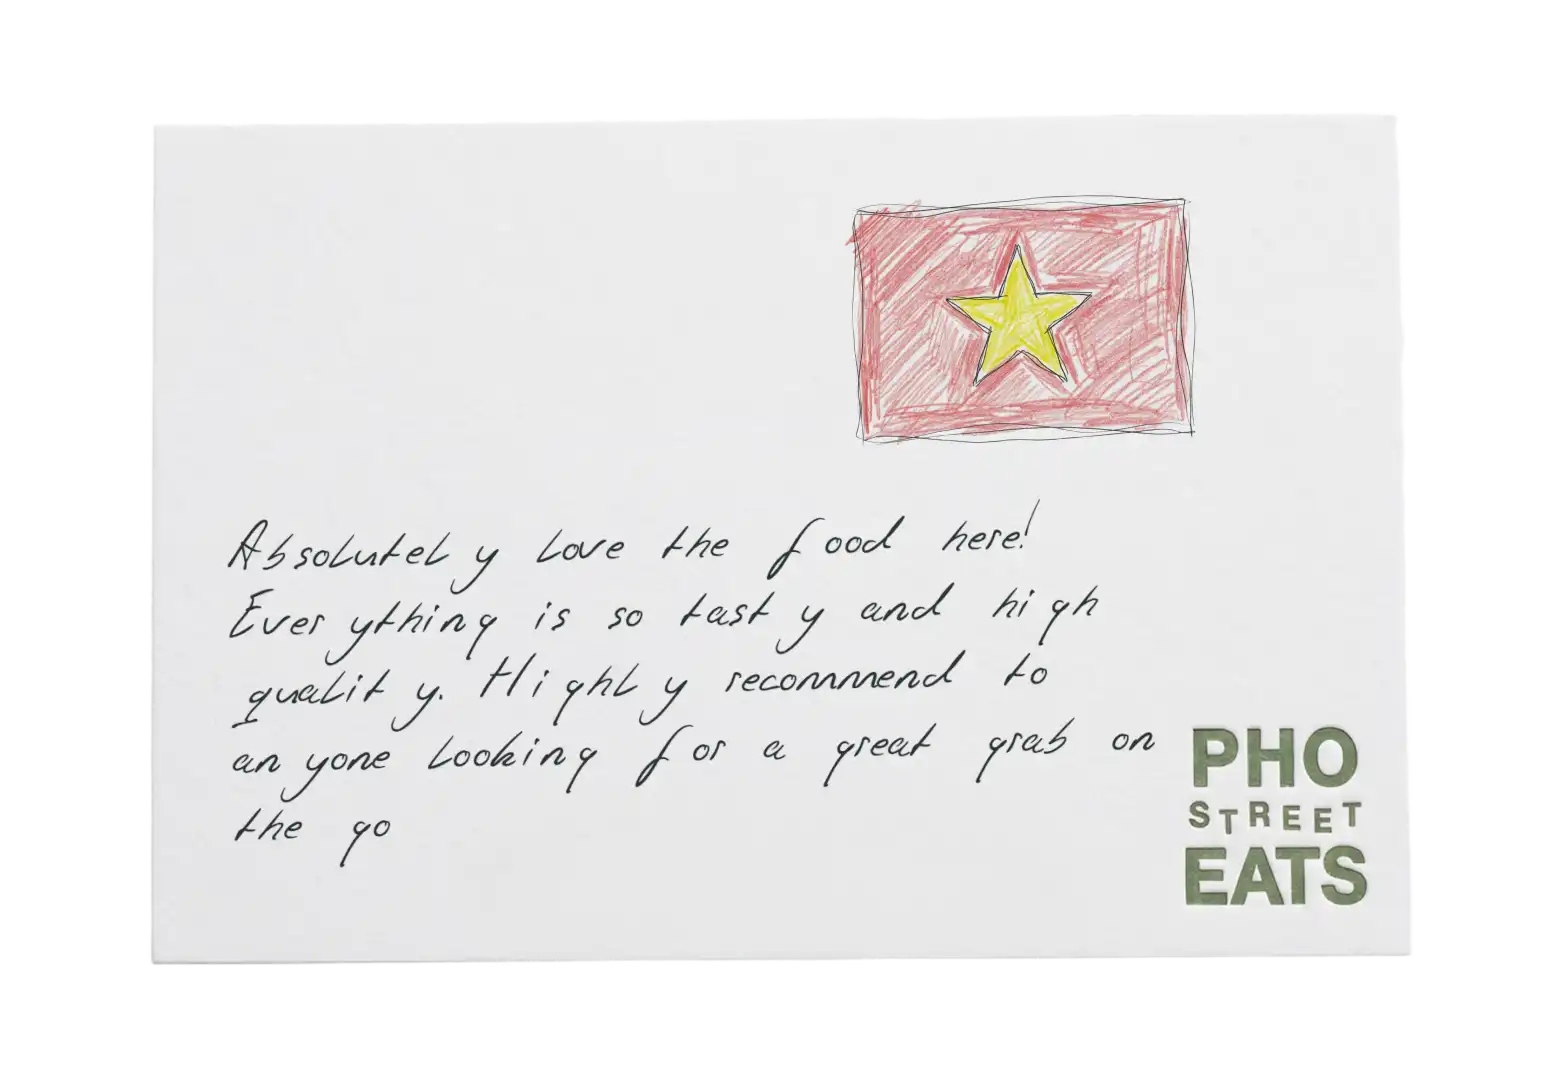 Absolutely love the food here!
Everything is so tasty and high
quality. Highly recommend to
anyone looking for a great grab on
the go
PHO
STREET
EATS